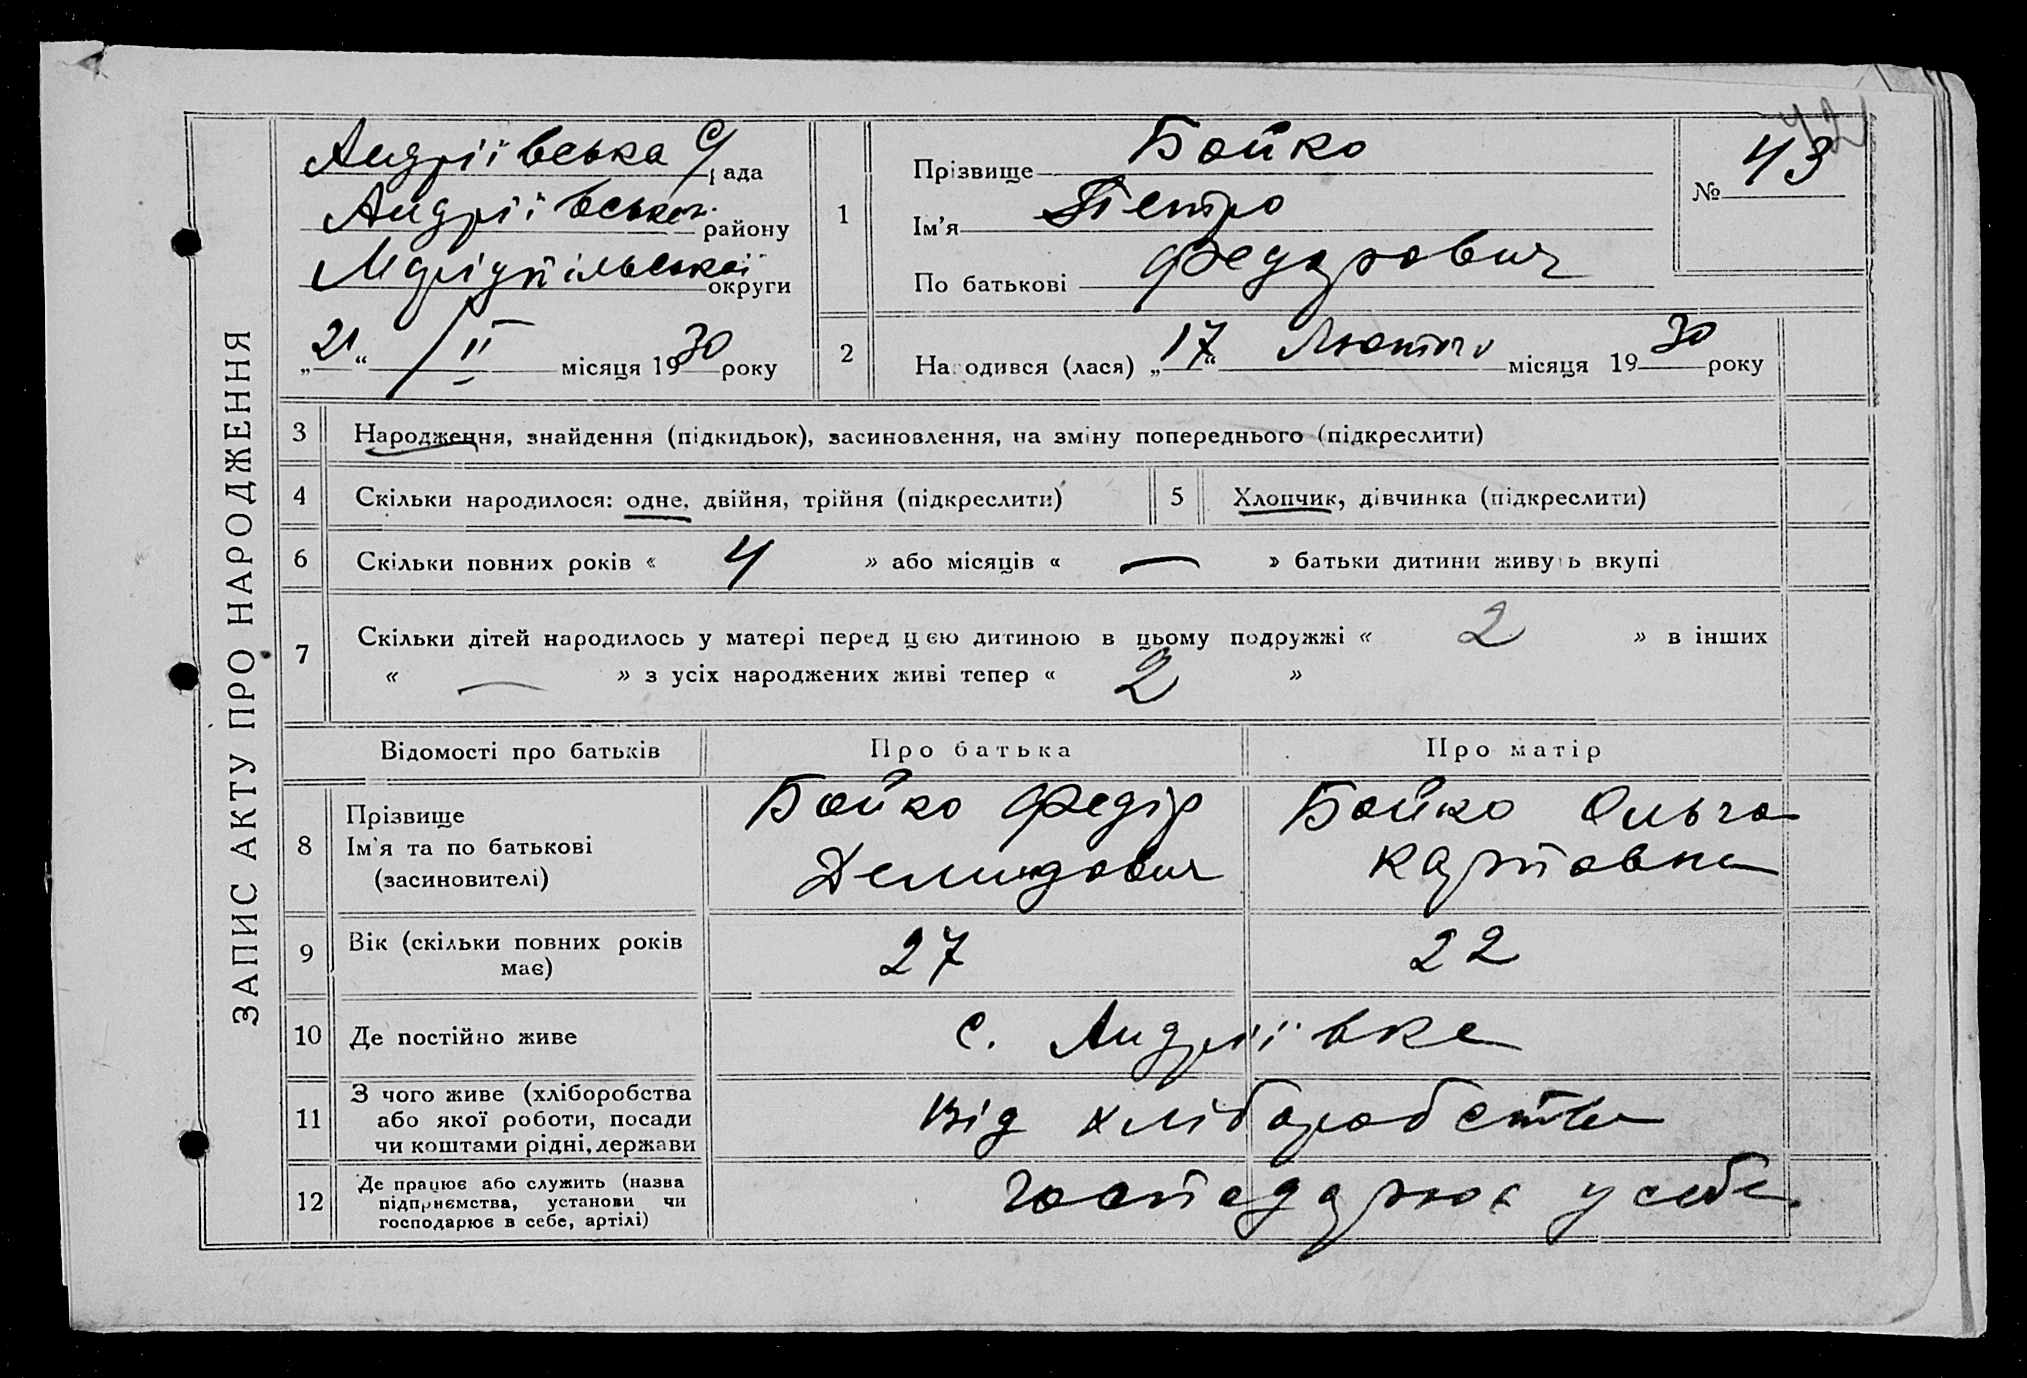 ЗАПИС АКТУ ПРО НАРОДЖЕННЯ
Андріївська с/рада
Андріївськог. району
Маріупільської округи
„21“ II місяця 1930 року
1
Прізвище Бойко
Ім'я Петро
По батькові Федорович
№ 43
42
2
Народився (лася) „17“ Лютого місяця 1930 року
3 Народження, знайдення (підкидьок), засиновлення, на зміну попереднього (підкреслити)
4 Скільки народилося: одне, двійня, трійня (підкреслити)
5 Хлопчик, дівчинка (підкреслити)
6 Скільки повних років « 4 » або місяців « — » батьки дитини живуть вкупі
7 Скільки дітей народилось у матері перед цією дитиною в цьому подружжі « 2 » в інших
« — » з усіх народжених живі тепер « 2 »
Відомості про батьків Про батька Про матір
8 Прізвище
Ім'я та по батькові
(засиновителі)
Бойко Федір
Демидович
Бойко Ольга
Карповна
9 Вік (скільки повних років
має)
27 22
10 Де постійно живе с. Андріївка
11 З чого живе (хліборобства
або якої роботи, посади
чи коштами рідні, держави
від хліборобства
12 Де працює або служить (назва
підприємства, установи чи
господарює в себе, артілі)
господарює у себе